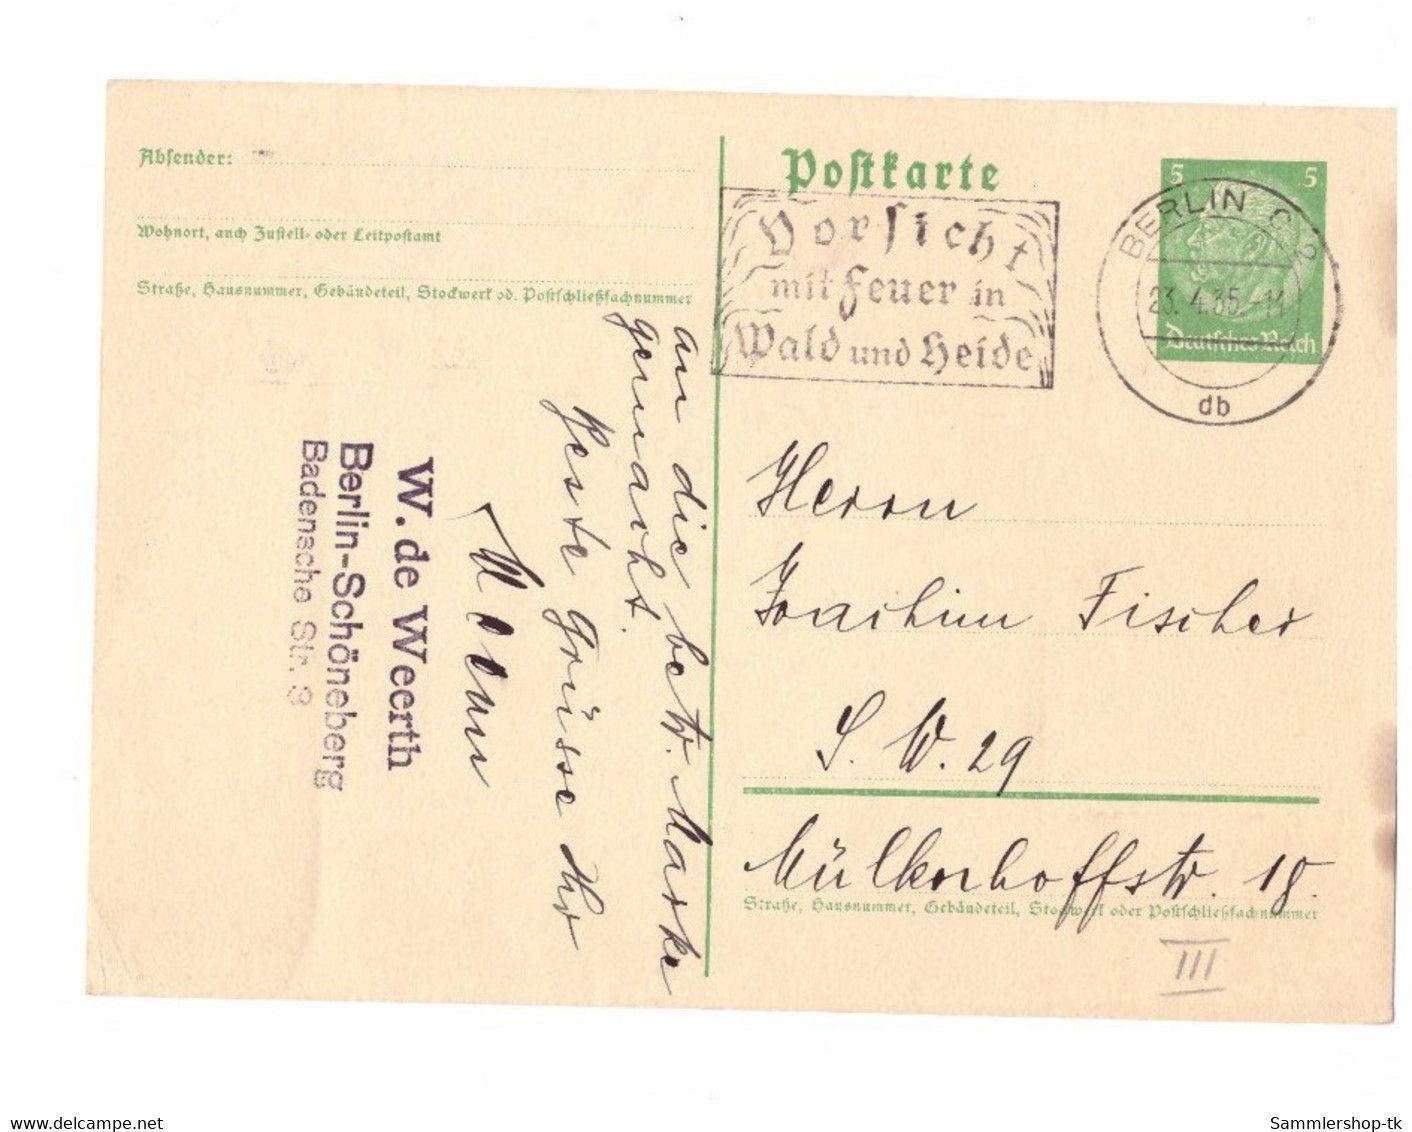 Absender:
Wohnort, auch Zustell- oder Leitpostamt
Straße, Hausnummer, Gebäudeteil, Stockwerk od. Postschließfachnummer
an die betr. Marke
gemacht.
Beste Grüsse Ihr
W. de Weerth
Berlin-Schöneberg
Badensche Str. 3
Postkarte
Vorsicht
mit Feuer in
Wald und Heide
5 5
Deutsches Reich
BERLIN C 2
23.4.35.-14
db
Herrn
Joachim Fischer
S. W. 29
Mülhenhoffstr. 18.
Straße, Hausnummer, Gebäudeteil, Stockwerk oder Postschließfachnummer
III
www.delcampe.net
Sammlershop-tk